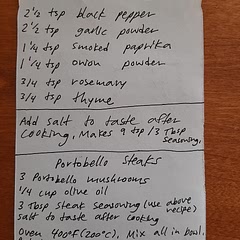 2 1/2 tsp black pepper
2 1/2 tsp garlic powder
1 1/4 tsp smoked paprika
1 1/4 tsp onion powder
3/4 tsp rosemary
3/4 tsp thyme
Add salt to taste after
cooking, Makes 9 tsp/3 Tbsp
seasoning,
Portobello Steaks
3 Portobello mushrooms
1/4 cup olive oil
3 Tbsp steak seasoning (use above
recipe)
salt to taste after cooking
Oven 400°F (200°C), Mix all in bowl.